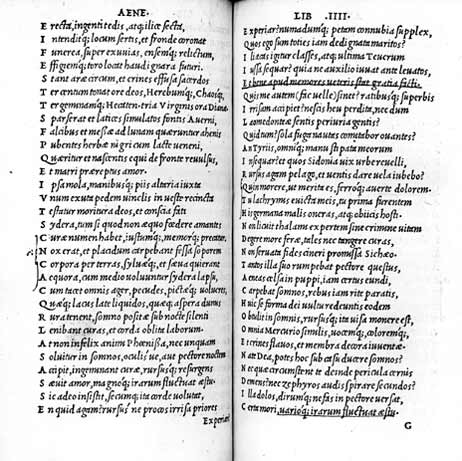 AENE.
E recta, ingenti tedis, atq; ilice secta,
I ntenditq; locum sertis, et fronde coronat
F unerea, super exuuias, ensemq; relictum,
E ffigiemq; toro locat haud ignara futuri.
S tant aræ circum, et crines effusa sacerdos
T er centum tonat ore deos, Herebumq;, Chaosq;,
T ergeminamq; Hecaten, tria Virginis ora Dianæ
S parserat et latices simulatos fontis Auerni,
F alcibus et messæ ad lunam quæruntur ahenis
P ubentes herbæ nigri cum lacte ueneni,
Q uæritur et nascentis equi de fronte reuulsus,
E t matri præreptus amor.
I psa mola, manibusq; piis altaria iuxta
V num exuta pedem uinclis in ueste recincta
T estatur moritura deos, et conscia fati
S ydera, tum si quod non æquo fœdere amantes
C uræ numen habet, iustumq; memorq; precatur.
N ox erat, et placidum carpebant fessa soporem
C orpora per terras, syluæq; et sæua quierant
A equora, cum medio uoluuntur sydera lapsu,
C um tacet omnis ager, pecudes, pictæq; uolucres,
Q uæq; lacus late liquidos, quæq; aspera dumis
R ura tenent, somno positæ sub nocte silenti
L enibant curas, et corda oblita laborum.
A t non infelix animi Phœnissa, nec unquam
S oluitur in somnos, oculis'ue, aut pectore noctem
A ccipit, ingeminant curæ, rursusq; resurgens
S æuit amor, magnoq; irarum fluctuat æstu.
S ic adeo insistit, secumq; ita corde uolutat,
E n quid agam? rursus'ne procos irrisa priores
Experiar?
LIB .IIII.
E xperiar? numadumq; petam connubia supplex,
Q uos ego sum toties iam dedignata maritos?
I liacas igitur classes, atq; ultima Teucrum
I ussa sequar? quia ne auxilio iuuat ante leuatos,
E t bene apud memores ueteris stat gratia facti.
Q uis me autem (fac uelle) sinet? ratibusq; superbis
I rrisam accipiet? nescis heu perdita, nec dum
L aomedonteæ sentis periuria gentis?
Q uid tum? sola fuga nautas comitabor ouantes?
A n Tyriis, omniq; manu stipata meorum
I nsequar? et quos Sidonia uix urbe reuelli,
R ursus agam pelago, et uentis dare uela iubebo?
Q uin morere, ut merita es, ferroq; auerte dolorem.
T u lachrymis euicta meis, tu prima furentem
H is germana malis oneras, atq; obiicis hosti.
N on licuit thalami expertem sine crimine uitam
D egere more feræ, tales nec tangere curas,
N on seruata fides cineri promissa Sichæo.
T antos illa suo rumpebat pectore questus,
A eneas celsa in puppi, iam certus eundi,
C arpebat somnos, rebus iam rite paratis,
H uic se forma dei uultu redeuntis eodem
O btulit in somnis, rursusq; ita uisa monere est,
O mnia Mercurio similis, uocemq;, coloremq;,
E t crines flauos, et membra decora iuuentæ.
N ate Dea, potes hoc sub casu ducere somnos?
N ec quæ circumstent te deinde pericula cernis
D emens? nec zephyros audis spirare secundos?
I lla dolos, dirumq; nefas in pectore uersat,
C erta mori, uarioq; irarum fluctuat æstu.
G